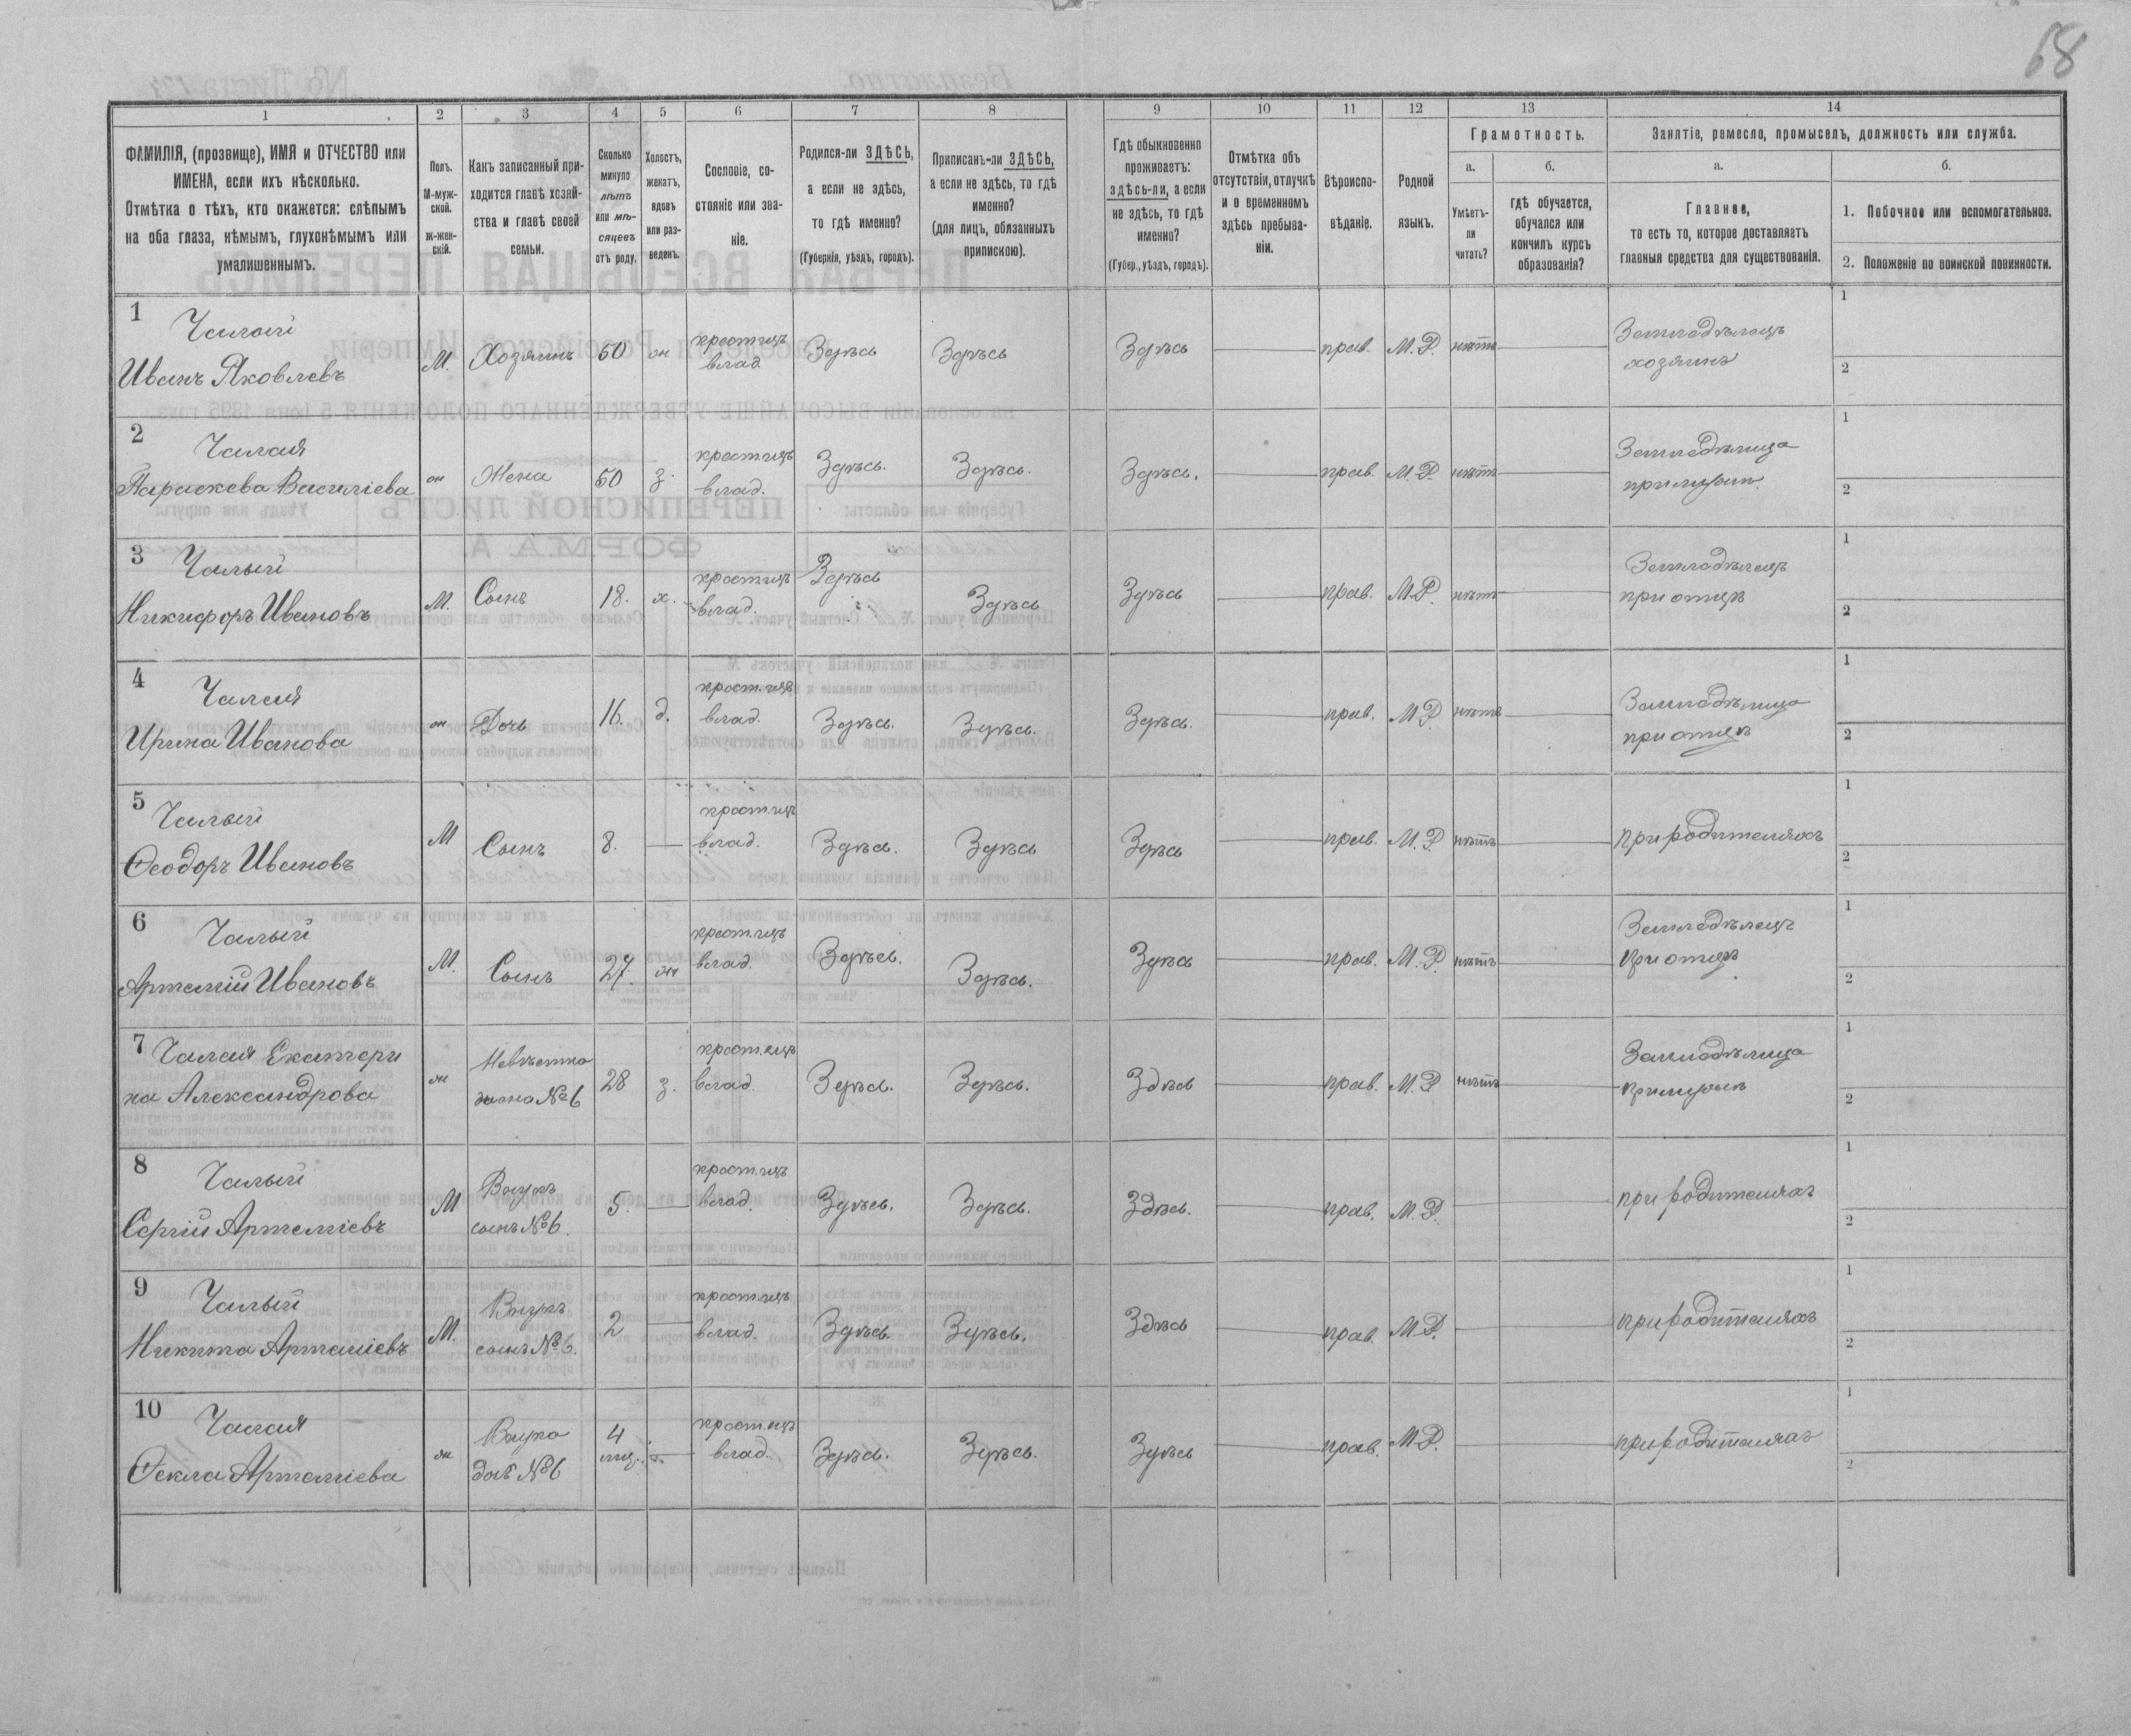 68
1 2 3 4 5 6 7 8 9 10 11 12 13 14
ФАМИЛІЯ, (прозвище), ИМЯ и ОТЧЕСТВО или
ИМЕНА, если ихъ нѣсколько.
Отмѣтка о тѣхъ, кто окажется: слѣпымъ
на оба глаза, нѣмымъ, глухонѣмымъ или
умалишеннымъ.
Полъ.
М-муж-
ской.
ж-жен-
скій.
Какъ записанный при-
ходится главѣ хозяй-
ства и главѣ своей
семьи.
Сколько
минуло
лѣтъ
или мѣ-
сяцевъ
отъ роду.
Холостъ,
женатъ,
вдовъ
или раз-
веденъ.
Сословіе, со-
стояніе или зва-
ніе.
Родился-ли ЗДѢСЬ,
а если не здѣсь,
то гдѣ именно?
(Губернія, уѣздъ, городъ).
Приписанъ-ли ЗДѢСЬ,
а если не здѣсь, то гдѣ
именно?
(для лицъ, обязанныхъ
припискою).
Гдѣ обыкновенно
проживаетъ:
здѣсь-ли, а если
не здѣсь, то гдѣ
именно?
(Губер., уѣздъ, городъ).
Отмѣтка объ
отсутствіи, отлучкѣ
и о временномъ
здѣсь пребыва-
ніи.
Вѣроиспо-
вѣданіе.
Родной
языкъ.
Грамотность.
а. б.
Умѣетъ-
ли
читать?
гдѣ обучается,
обучался или
кончилъ курсъ
образованія?
Занятіе, ремесло, промыселъ, должность или служба.
а. б.
Главное,
то есть то, которое доставляетъ
главныя средства для существованія.
1. Побочное или вспомогательное.
2. Положеніе по воинской повинности.
1 Чалый
Иванъ Яковлевъ М. Хозяинъ 50 ж крест. изъ
влад. Здѣсь Здѣсь Здѣсь прав. М. Р. нѣтъ Земледѣлецъ
хозяинъ 1 2
2 Чалая
Параскева Василіева ж Жена 50 з. крест. изъ
влад. Здѣсь. Здѣсь. Здѣсь. прав. М. Р. нѣтъ Земледѣлица
при мужѣ 1 2
3 Чалый
Никифоръ Ивановъ М. Сынъ 18. х. крест. изъ
влад. Здѣсь Здѣсь Здѣсь прав. М. Р. нѣтъ Земледѣлецъ
при отцѣ 1 2
4 Чалая
Ирина Иванова ж Дочь 16. д. крест. изъ
влад. Здѣсь. Здѣсь. Здѣсь. прав. М. Р. нѣтъ Земледѣлица
при отцѣ 1 2
5 Чалый
Ѳеодоръ Ивановъ М Сынъ 8. крест. изъ
влад. Здѣсь. Здѣсь Здѣсь прав. М. Р. нѣтъ при родителяхъ 1 2
6 Чалый
Артемій Ивановъ М. Сынъ 27. ж крест. изъ
влад. Здѣсь. Здѣсь. Здѣсь прав. М. Р. нѣтъ Земледѣлецъ
при отцѣ 1 2
7 Чалая Екатери
на Александрова ж Невѣстка
жена №6 28 з. крест. изъ
влад. Здѣсь. Здѣсь. Здѣсь прав. М. Р нѣтъ Земледѣлица
при мужѣ 1 2
8 Чалый
Сергій Артеміевъ М Внукъ
сынъ №6. 5. крест. изъ
влад. Здѣсь. Здѣсь. Здѣсь. прав. М. Р. при родителяхъ 1 2
9 Чалый
Никита Артеміевъ М. Внукъ
сынъ №6. 2 крест. изъ
влад. Здѣсь. Здѣсь. Здѣсь прав. М. Р. при родителяхъ 1 2
10 Чалая
Ѳекла Артеміева ж Внука
доч №6 4
мѣс. крест. изъ
влад. Здѣсь. Здѣсь. Здѣсь прав. М. Р. при родителяхъ 1 2